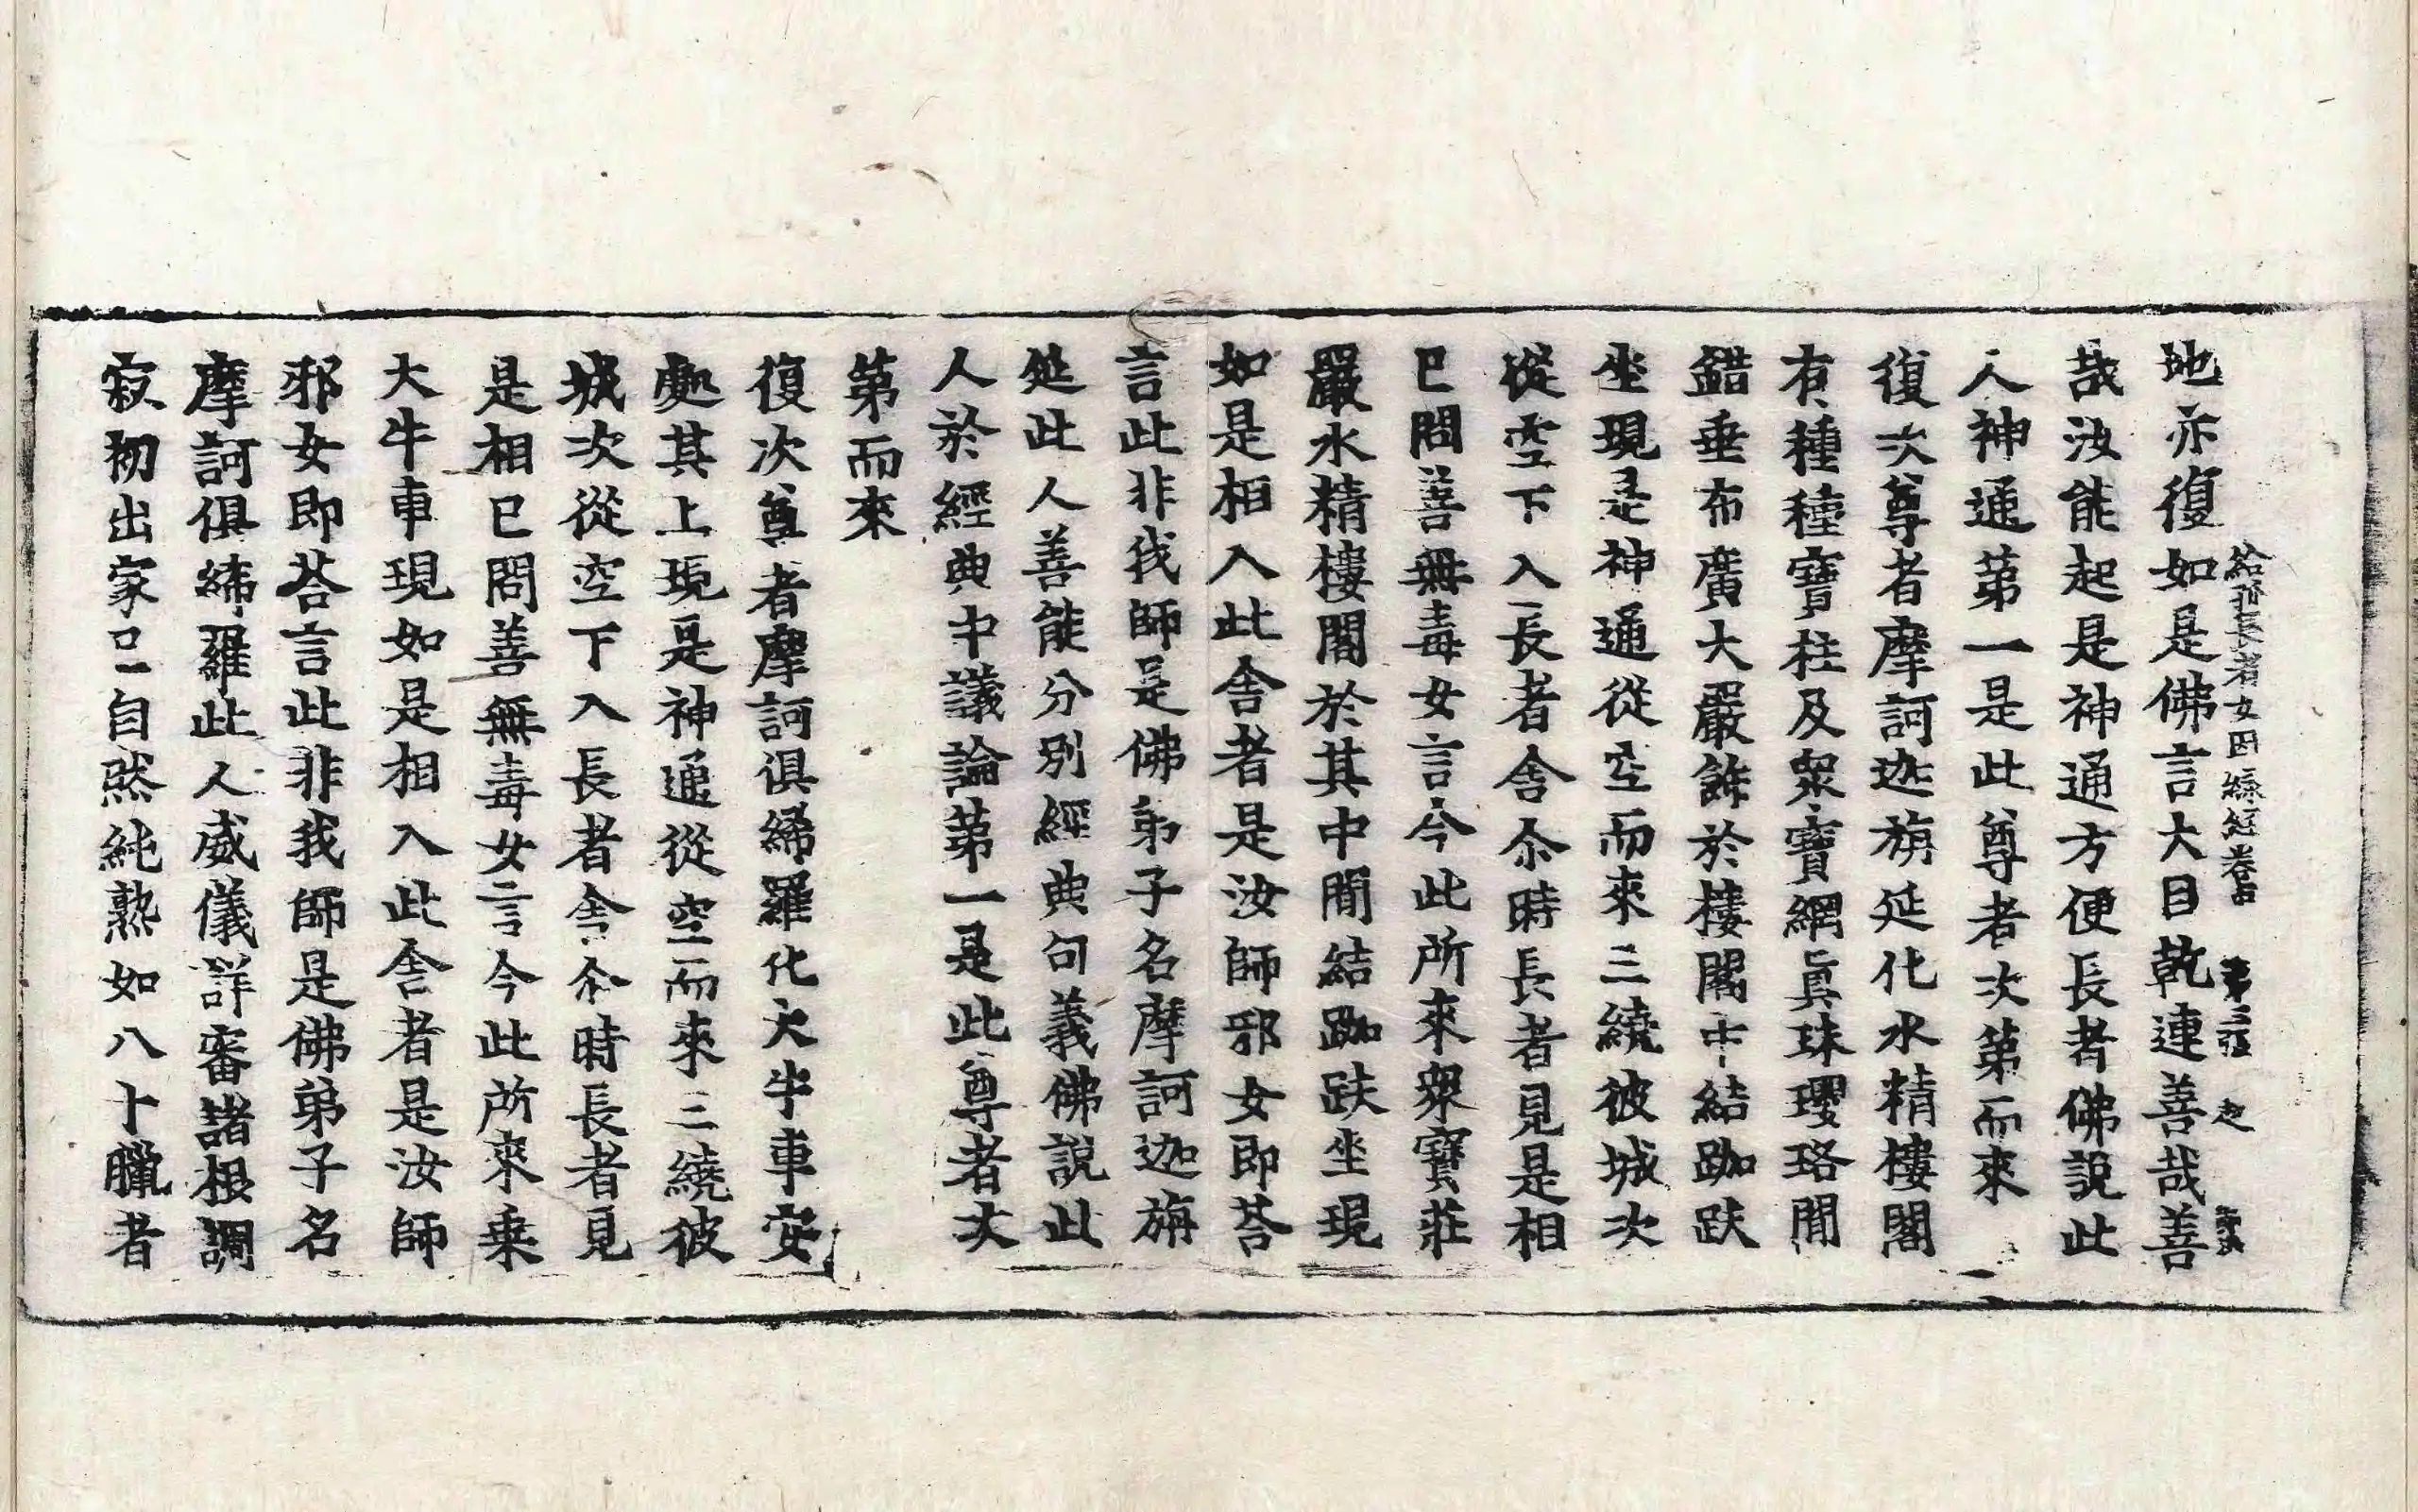 地亦復如是佛言大目乾連善哉善
給孤長者女因緣經卷中 第三張 起
哉汝能起是神通方便長者佛說此
人神通第一是此尊者次第而來
復次尊者摩訶迦旃延化水精樓閣
有種種寶柱及眾寶網真珠瓔珞間
錯垂布廣大嚴飾於樓閣中結跏趺
坐現是神通從空而來三繞彼城次
從空下入長者舍尒時長者見是相
已問善無毒女言今此所來眾寶莊
嚴水精樓閣於其中間結跏趺坐現
如是相入此舍者是汝師邪女即荅
言此非我師是佛弟子名摩訶迦旃
延此人善能分別經典句義佛說此
人於經典中議論第一是此尊者次
第而來
復次尊者摩訶俱絺羅化大牛車安
處其上現是神通從空而來三繞彼
城次從空下入長者舍尒時長者見
是相已問善無毒女言今此所來乗
大牛車現如是相入此舍者是汝師
邪女即荅言此非我師是佛弟子名
摩訶俱絺羅此人威儀詳審諸根調
寂初出家已自然純熟如八十臘者